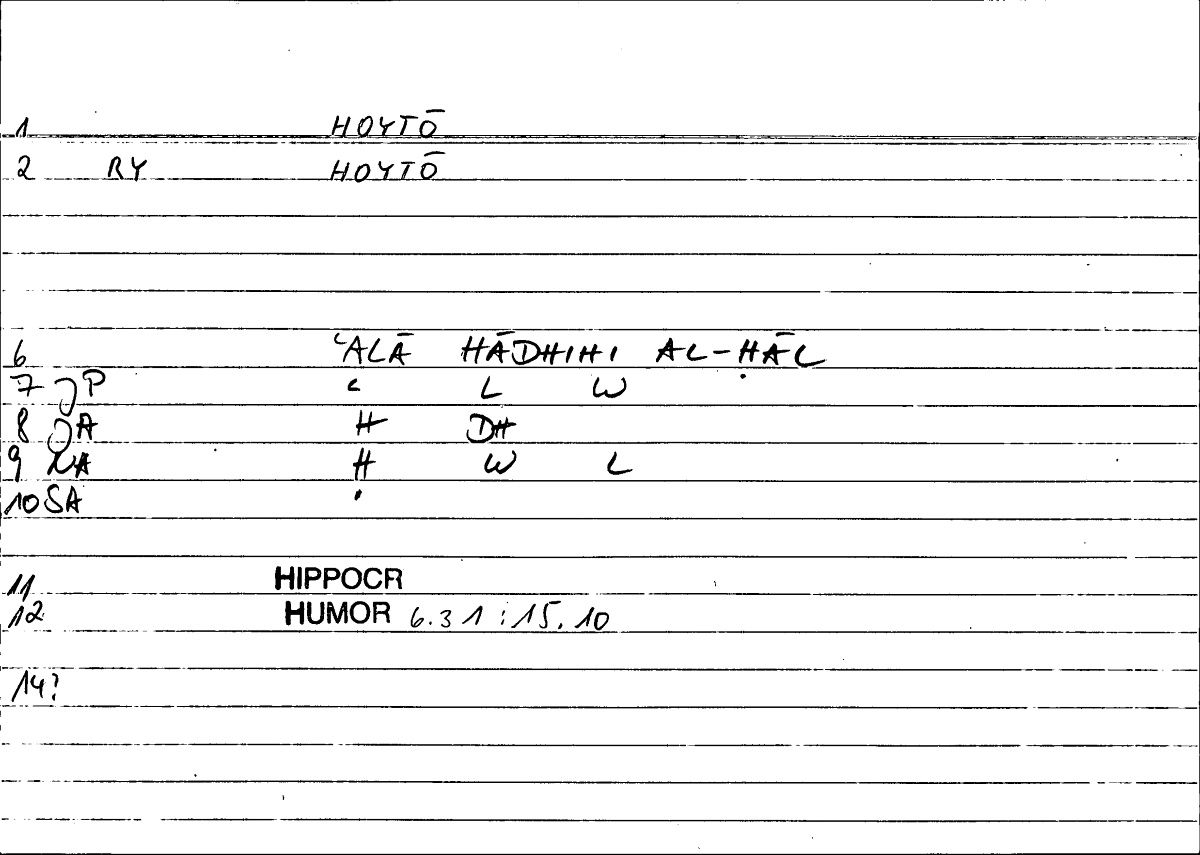 1 HOYTŌ
2 RY HOYTŌ
6 ʿALĀ HĀDHIHI AL-ḤĀL
7 JP ʿ L W
8 JA H DH
9 NA Ḥ W L
10 SA .
11 HIPPOCR
12 HUMOR 6.31:15.10
14?